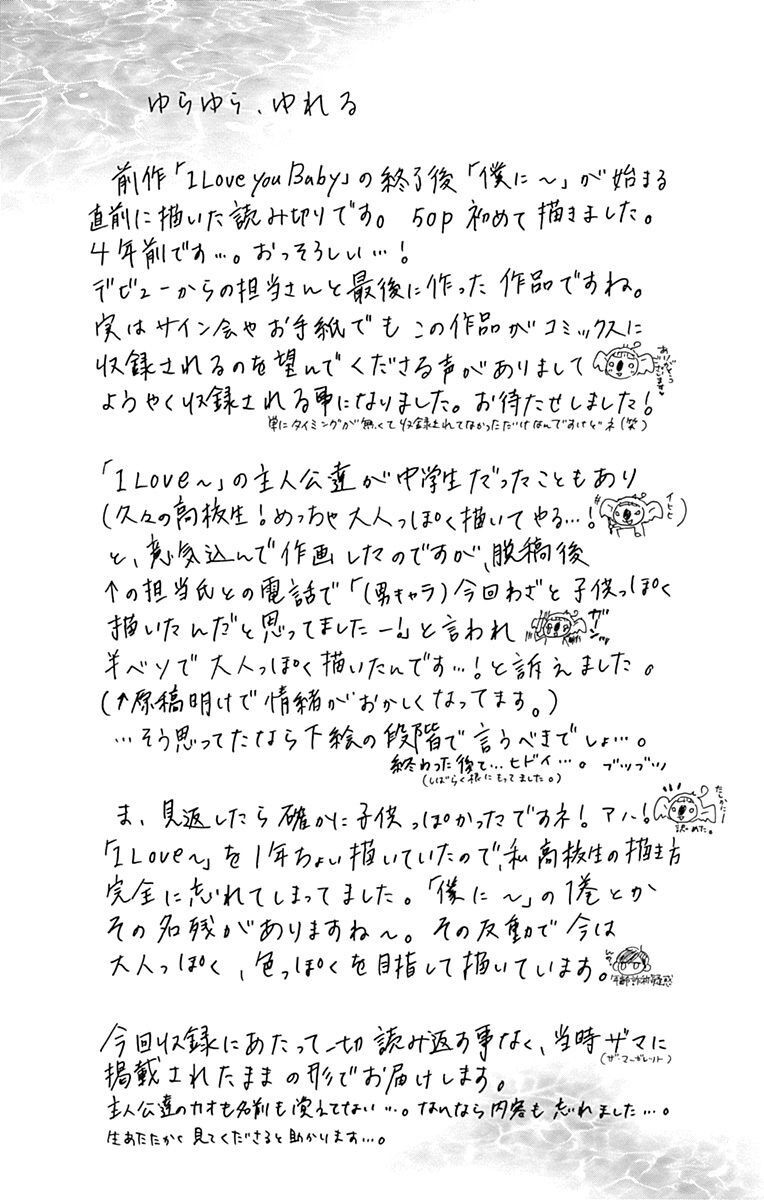 ゆらゆら、ゆれる
前作「I Love you Baby」の終了後「僕に～」が始まる
直前に描いた読み切りです。50p 初めて描きました。
4年前です…。おっそろしい…!
デビューからの担当さんと最後に作った作品ですね。
実はサイン会やお手紙でもこの作品がコミックスに
収録されるのを望んでくださる声がありまして
ありがとうございます
ようやく収録される事になりました。お待たせしました!
単にタイミングが無くて収録されてなかっただけなんですけどネ(笑)
「I Love～」の主人公達が中学生だったこともあり
(久々の高校生!めっちゃ大人っぽく描いてやる…!
イヒヒ)
と、意気込んで作画したのですが、脱稿後
↑の担当氏との電話で「(男キャラ)今回わざと子供っぽく
描いたんだと思ってましたー!」と言われ
ガーン
半ベソで大人っぽく描いたんです…!と訴えました。
(↑原稿明けで情緒がおかしくなってます。)
…そう思ってたなら下絵の段階で言うべきでしょ…。
終わった後で…ヒドイ…。ブツブツ
(しばらく根にもってました。)
ま、見返したら確かに子供っぽかったですネ!アハ!
たしかにー!
認めた。
「I Love～」を1年ちょい描いていたので、私高校生の描き方
完全に忘れてしまってました。「僕に～」の1巻とか
その名残がありますね～。その反動で今は
大人っぽく、色っぽくを目指して描いています。
年齢詐称疑惑
今回収録にあたって一切読み返す事なく、当時ザマに
(ザ・マーガレット)
掲載されたままの形でお届けします。
主人公達のカオも名前も覚えてない…。なんなら内容も忘れました…。
生あたたかく見てくださると助かります…。